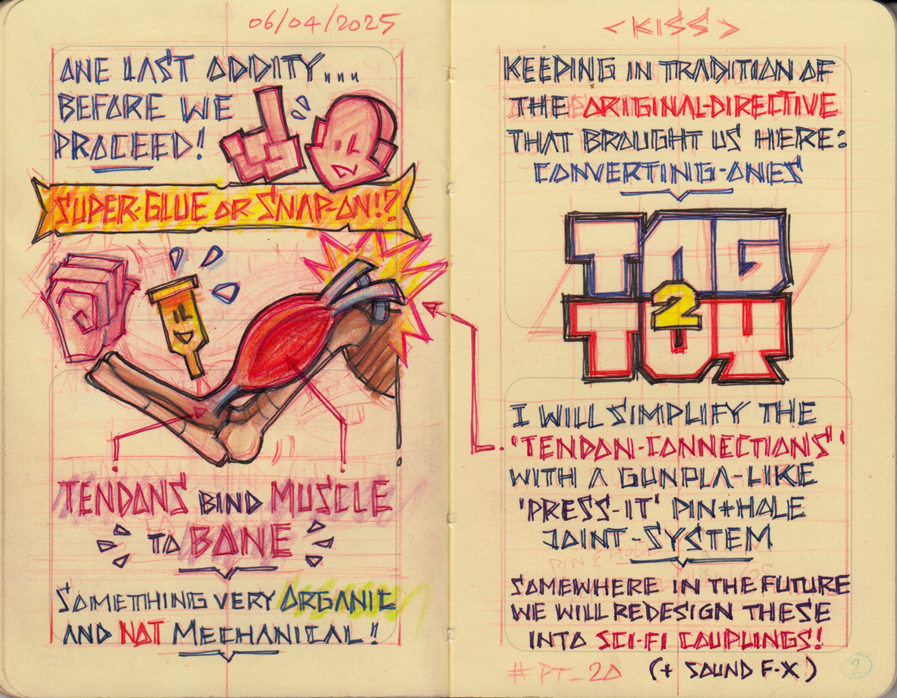 06/04/2025
ONE LAST ODDITY...
BEFORE WE
PROCEED!
SUPER-GLUE OR SNAP-ON!?
TENDONS BIND MUSCLE
TO BONE
SOMETHING VERY ORGANIC
AND NOT MECHANICAL!!
<KISS>
KEEPING IN TRADITION OF
THE ORIGINAL-DIRECTIVE
THAT BROUGHT US HERE:
CONVERTING-ONES
TAG
2
TOY
I WILL SIMPLIFY THE
'TENDON-CONNECTIONS'
WITH A GUNPLA-LIKE
'PRESS-IT' PIN+HOLE
JOINT-SYSTEM
SOMEWHERE IN THE FUTURE
WE WILL REDESIGN THESE
INTO SCI-FI COUPLINGS!
#PT_20 (+ SOUND F-X)
2